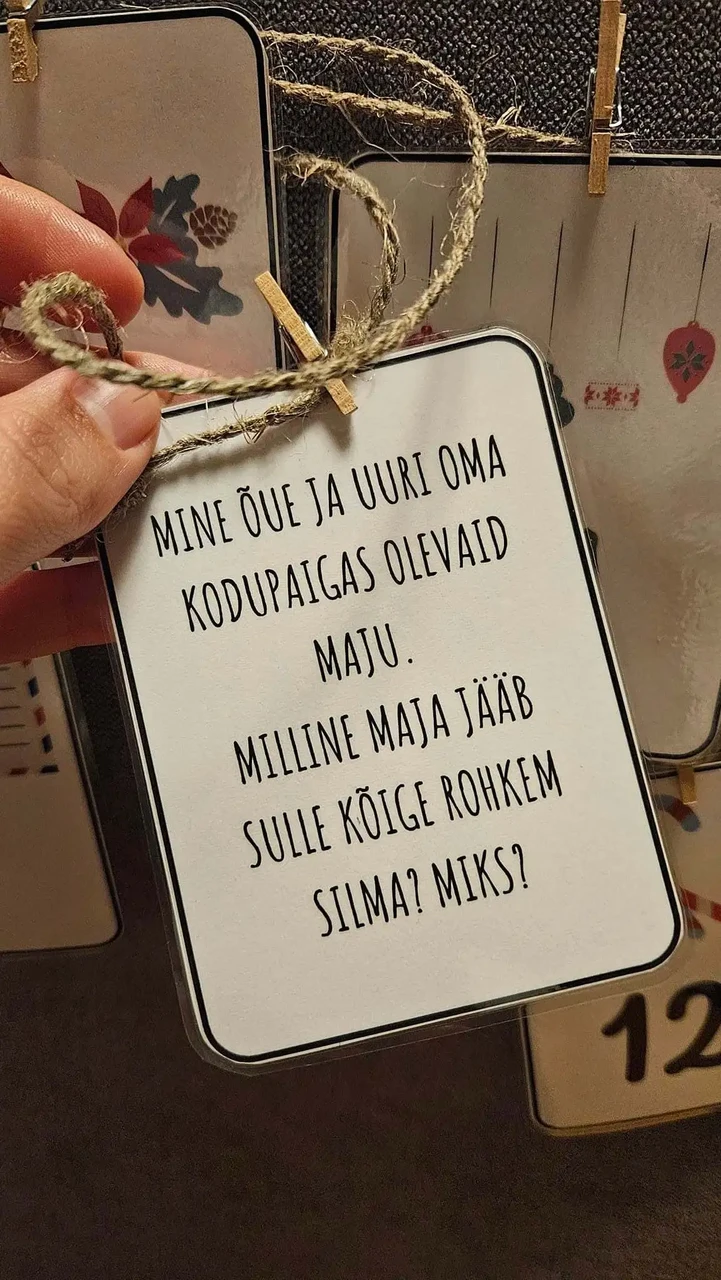 MINE ÕUE JA UURI OMA
KODUPAIGAS OLEVAID
MAJU.
MILLINE MAJA JÄÄB
SULLE KÕIGE ROHKEM
SILMA? MIKS?
12